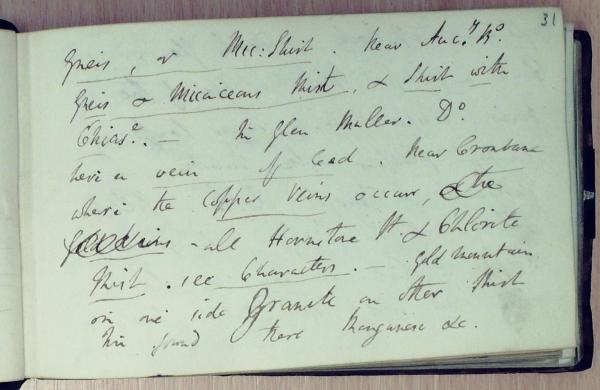 31
Gneis, or Mic: Shist. Near Auc.y Bo.
Gneis & Micaiceous Shist, & Shist with
Chias.e. — In Glen Maller. Do.
here a vein of Lead. Near Cronbane
where the Copper Veins occur, & the
all Hornstone & Chlorite
Shist. see Characters. — Gold mountain
on one side Granite on other Shist
found there Manganese &c.